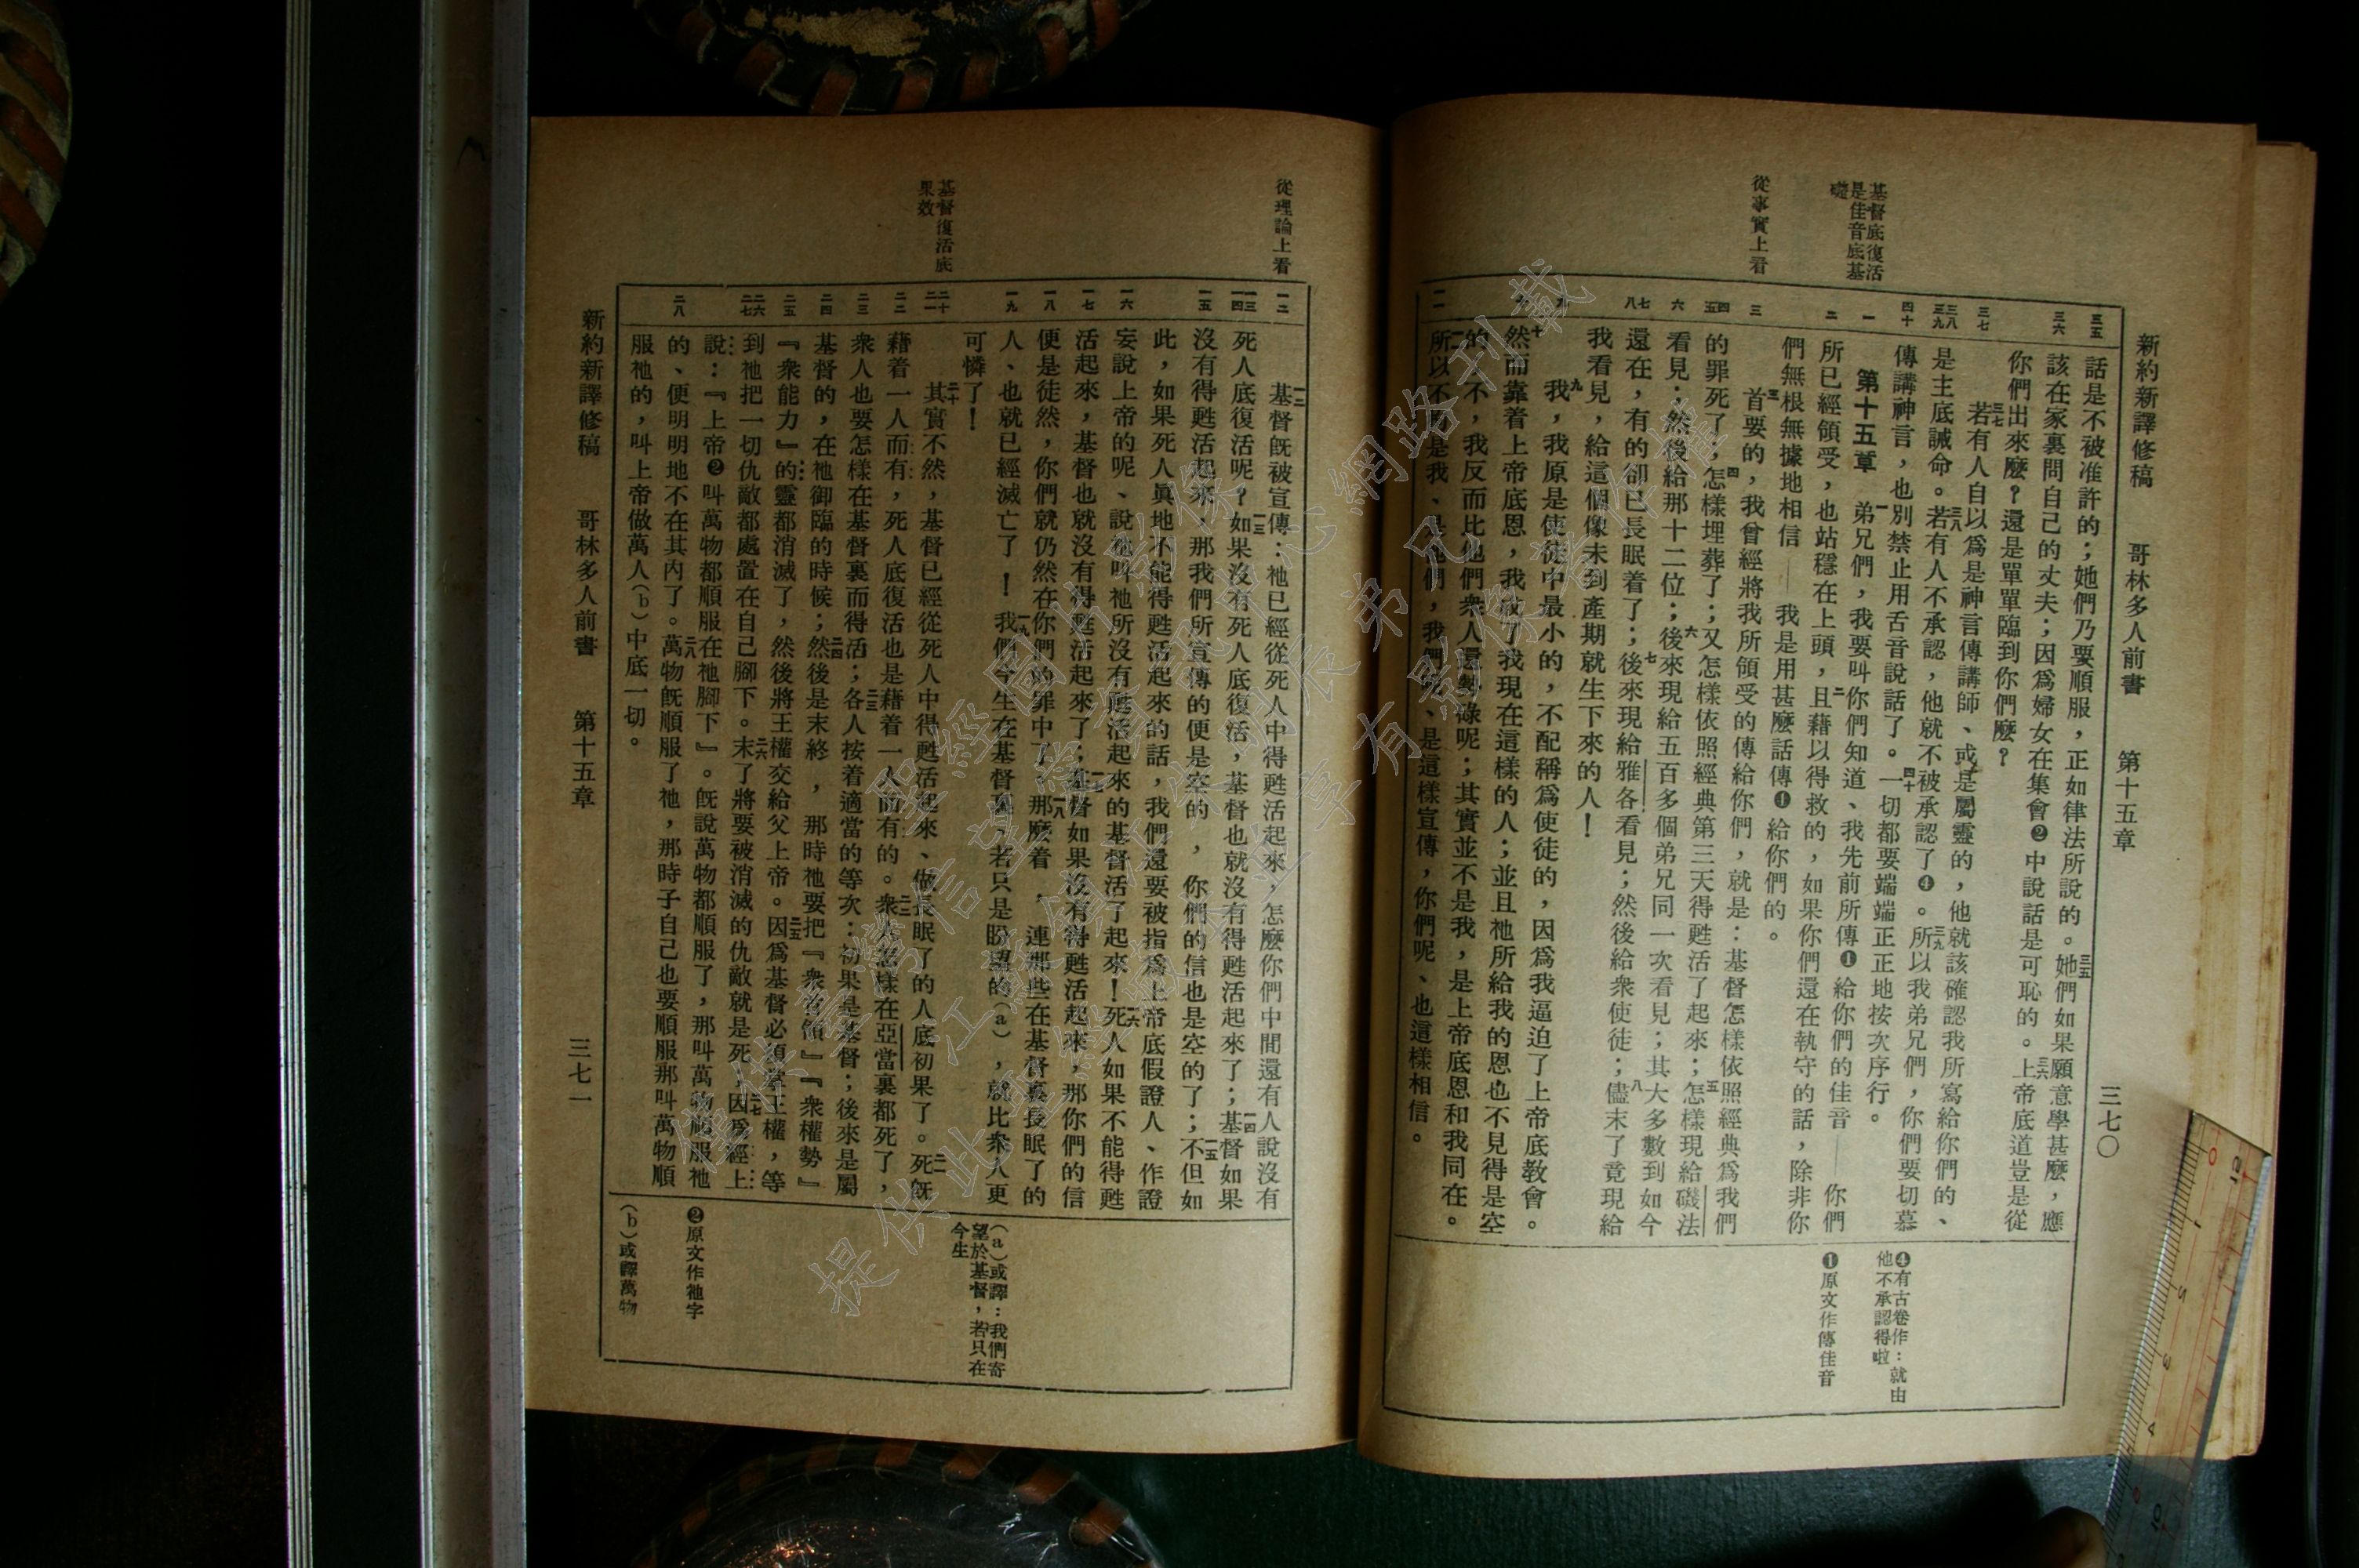 新約新譯修稿　哥林多人前書　第十五章　三七〇
基督底復活
是佳音底基
礎
從事實上看
三五
三六
三七
三八
三九
四十
一
二
三
四
五
六
七
八
九
十
話是不被准許的；她們乃要順服，正如律法所說的。三五她們如果願意學甚麼，應
該在家裏問自己的丈夫；因爲婦女在集會❷中說話是可恥的。三六上帝底道豈是從
你們出來麼？還是單單臨到你們麼？
三七若有人自以爲是神言傳講師、或是屬靈的，他就該確認我所寫給你們的、
是主底誡命。三八若有人不承認，他就不被承認了❹。三九所以我弟兄們，你們要切慕
傳講神言，也別禁止用舌音說話了。四十一切都要端端正正地按次序行。
第十五章　一弟兄們，我要叫你們知道、我先前所傳❶給你們的佳音——你們
所已經領受，也站穩在上頭，二且藉以得救的，如果你們還在執守的話，除非你
們無根無據地相信——我是用甚麼話傳❶給你們的。
三首要的，我曾經將我所領受的傳給你們，就是：基督怎樣依照經典爲我們
的罪死了，四怎樣埋葬了；又怎樣依照經典第三天得甦活了起來；五怎樣現給磯法
看見；然後給那十二位；六後來現給五百多個弟兄同一次看見；其大多數到如今
還在，有的卻已長眠着了；七後來現給雅各看見；然後給衆使徒；八儘末了竟現給
我看見，給這個像未到產期就生下來的人！
九我，我原是使徒中最小的，不配稱爲使徒的，因爲我逼迫了上帝底教會。
十然而靠着上帝底恩，我成了我現在這樣的人；並且祂所給我的恩也不見得是空
的，不，我反而比他們衆人還勞碌呢；其實並不是我，是上帝底恩和我同在。
所以不問是我、是他們，我們呢、是這樣宣傳，你們呢、也這樣相信。
❹有古卷作：就由
他不承認得啦
❶原文作傳佳音
從理論上看
基督復活底
果效
一二
一三
一四
一五
一六
一七
一八
一九
二十
二一
二二
二三
二四
二五
二六
二七
二八
一二基督既被宣傳：祂已經從死人中得甦活起來，怎麼你們中間還有人說沒有
死人底復活呢？一三如果沒有死人底復活，基督也就沒有得甦活起來了；一四基督如果
沒有得甦活起來，那我們所宣傳的便是空的，你們的信也是空的了；一五不但如
此，如果死人真地不能得甦活起來的話，我們還要被指爲上帝底假證人、作證
妄說上帝的呢、說祂叫祂所沒有甦活起來的基督活了起來！一六死人如果不能得甦
活起來，基督也就沒有得甦活起來了；一七基督如果沒有得甦活起來，那你們的信
便是徒然，你們就仍然在你們的罪中了。一八那麼着，連那些在基督裏長眠了的
人、也就已經滅亡了！一九我們今生在基督裏、若只是盼望的(a)，就比衆人更
可憐了！
二十其實不然，基督已經從死人中得甦活起來、做長眠了的人底初果了。二一死既
藉着一人而有，死人底復活也是藉着一人而有的。二二衆人怎樣在亞當裏都死了，
衆人也要怎樣在基督裏而得活；二三各人按着適當的等次：初果是基督；後來是屬
基督的，在祂御臨的時候；二四然後是末終，那時祂要把『衆首領』『衆權勢』
『衆能力』的靈都消滅了，然後將王權交給父上帝。二五因爲基督必須掌王權，等
到祂把一切仇敵都處置在自己腳下。二六末了將要被消滅的仇敵就是死，二七因爲經上
說：『上帝❷叫萬物都順服在祂腳下』。既說萬物都順服了，那叫萬物順服祂
的、便明明地不在其內了。二八萬物既順服了祂，那時子自己也要順服那叫萬物順
服祂的，叫上帝做萬人(b)中底一切。
(a)或譯：我們寄
望於基督，若只在
今生
❷原文作祂字
(b)或譯萬物
新約新譯修稿　哥林多人前書　第十五章　三七一